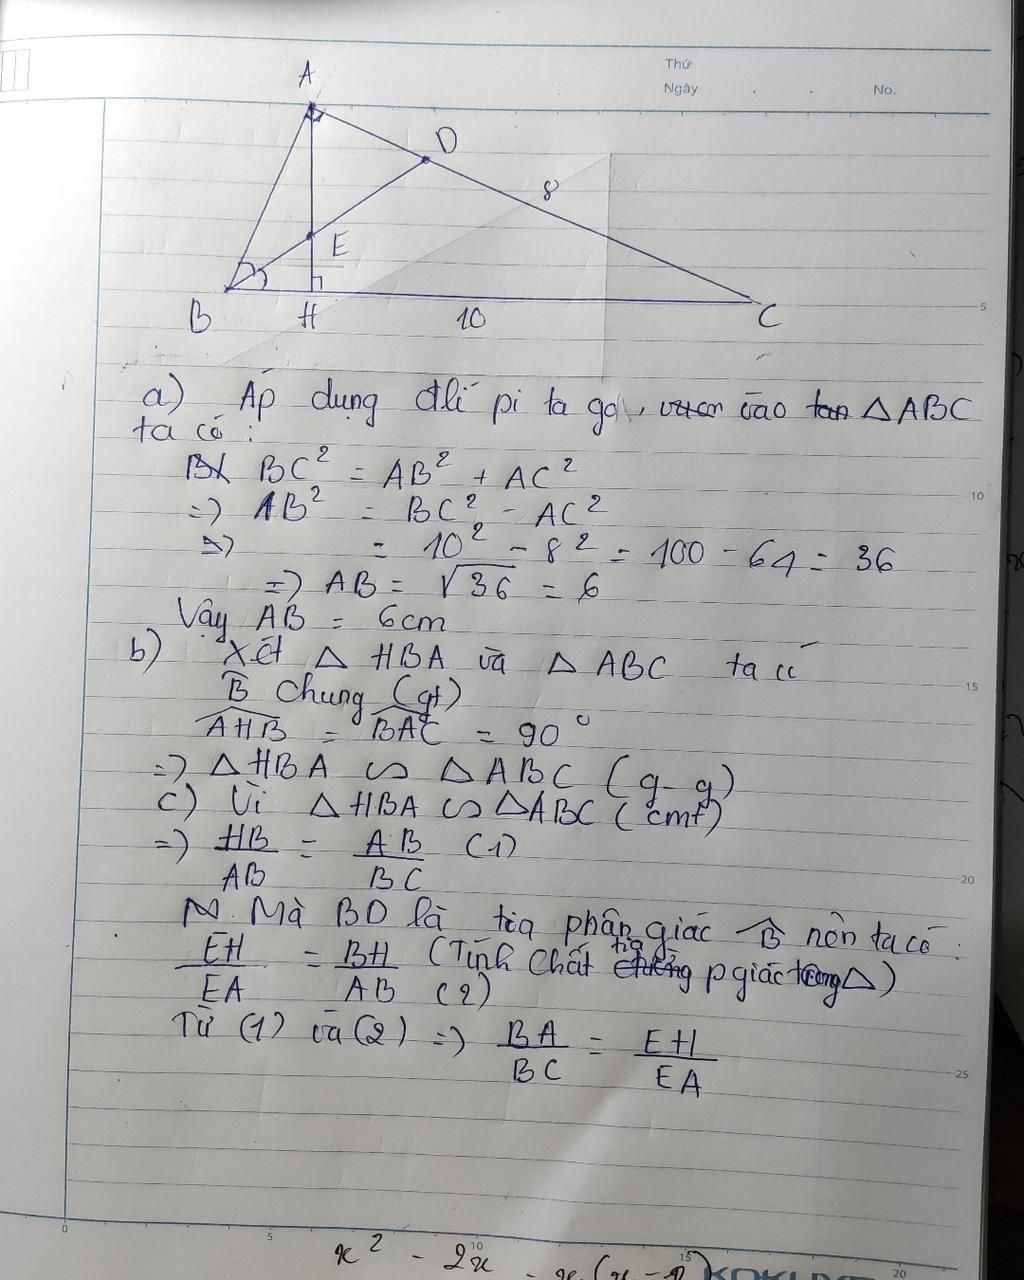 Thứ
Ngày . . No.
A
D
8
E
B H 10 C
5
a) Áp dụng đlí pi ta go, vào △ABC
ta có:
BC² = AB² + AC²
10
=> AB² = BC² - AC²
=> = 10² - 8² = 100 - 64 = 36
=> AB = √36 = 6
Vậy AB = 6cm
b) Xét △ HBA và △ ABC ta có
15
B̂ chung (gt)
AHB = BAC = 90°
=> △HBA ∽ △ABC (g-g)
c) Vì △HBA ∽ △ABC (cmt)
=> HB/AB = AB/BC (1)
20
Mà BD là tia phân giác B̂ nên ta có:
EH/EA = BH/AB (Tính chất tia pgiác trong△)
(2)
Từ (1) và (2) => BA/BC = EH/EA
25
0 5 10 15 20
x² - 2x
KOKUYO